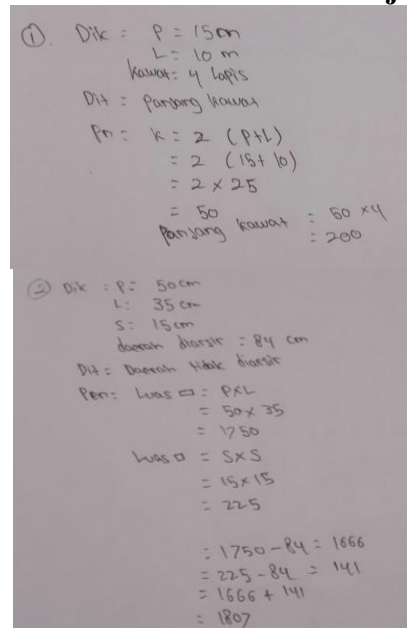 ① Dik = P = 15 cm
L = 10 m
Kawat = 4 lapis
Dit = Panjang kawat
Pn = K = 2 (P+L)
= 2 (15+10)
= 2 × 25
= 50
Panjang kawat = 50 × 4
= 200
② Dik : P = 50 cm
L : 35 cm
S : 15 cm
daerah diarsir = 84 cm
Dit = Daerah tidak diarsir
Pen : Luas ▭ = P×L
= 50 × 35
= 1750
Luas □ = S×S
= 15×15
= 225
= 1750 - 84 = 1666
= 225 - 84 = 141
= 1666 + 141
= 1807